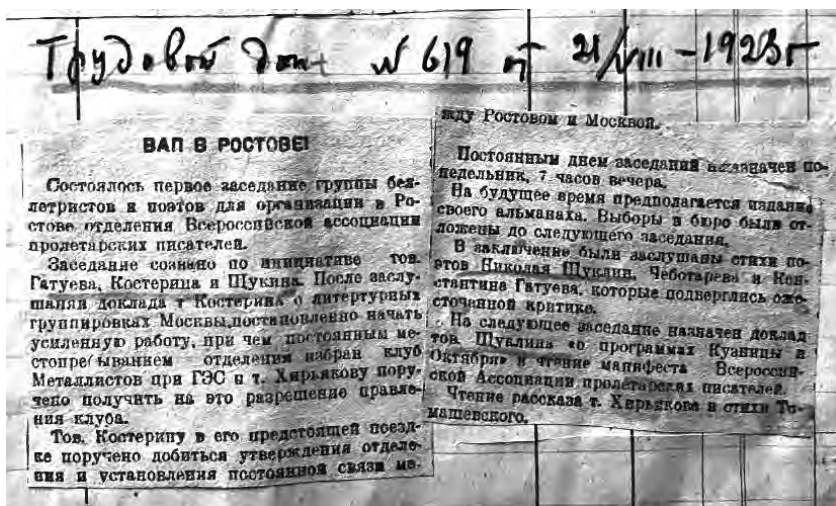 Трудовой Дон № 619 от 21/VIII-1923г
ВАП В РОСТОВЕ!
Состоялось первое заседание группы бел-
летристов и поэтов для организации в Ро-
стове отделения Всероссийской ассоциации
пролетарских писателей.
Заседание созвано по инициативе тов.
Гатуева, Костерина и Щукина. После заслу-
шания доклада т Костерина о литертурных
группировках Москвы, постановленно начать
усиленную работу, при чем постоянным ме-
стопребыванием отделения избран клуб
Металлистов при ГЭС и т. Хирьякову пору-
чено получить на это разрешение правле-
ния клуба.
Тов. Костерину в его предстоящей поезд-
ке поручено добиться утверждения отделе-
ния и установления постоянной связи ме-
жду Ростовом и Москвой.
Постоянным днем заседаний назначен по-
недельник, 7 часов вечера.
На будущее время предполагается издание
своего альманаха. Выборы в бюро были от-
ложены до следующего заседания.
В заключение были заслушаны стихи по-
этов Николая Щуклин, Чеботарева и Кон-
стантина Гатуева, которые подверглись оже-
сточенной критике.
На следующее заседание назначен доклад
тов. Щуклина «о программах Кузницы и
Октября» и чтение манифеста Всероссий-
ской Ассоциации пролетарских писателей.
Чтение рассказа т. Хирьякова и стихи То-
машевского.